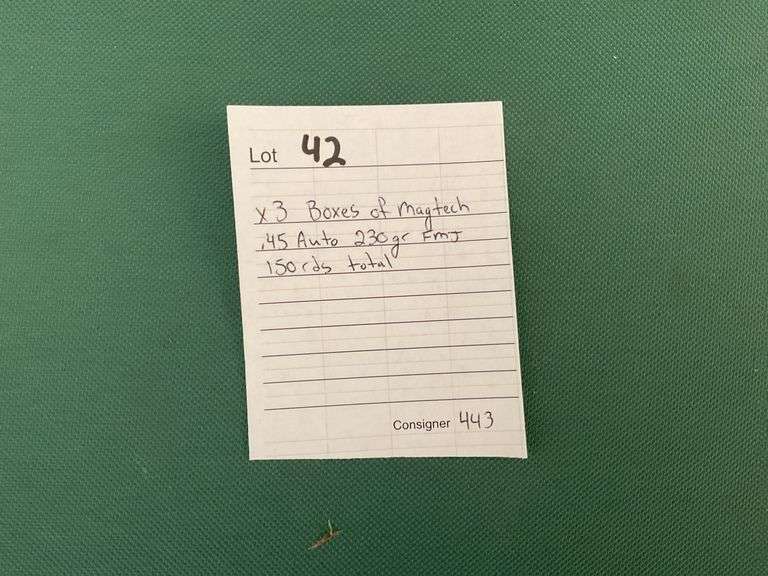 Lot 42
x3 Boxes of Magtech
.45 Auto 230gr FMJ
150rds total
Consigner 443